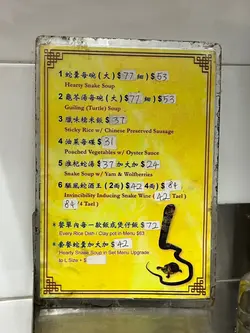 1 蛇羹每碗(大)$77 細)$53
Hearty Snake Soup
2 龜苓湯每碗(大)$77 細)$53
Guiling (Turtle) Soup
3 臘味糯米飯$37
Sticky Rice w/ Chinese Preserved Sausage
4 油菜每碟$31
Poached Vegetables w/ Oyster Sauce
5 淮杞蛇湯$37加大加$24
Snake Soup w/ Yam & Wolfberries
6 蛇酒王(2両)$42 4両)$84
Invincibility Inducing Snake Wine (42 Tael)
84 (4 Tael)
* 餐單內每一款飯或煲仔飯$72
Every Rice Dish / Clay pot in Menu $63
* 套餐蛇羹加大$42
Hearty Snake Soup in Set Menu Upgrade
to L Size + $